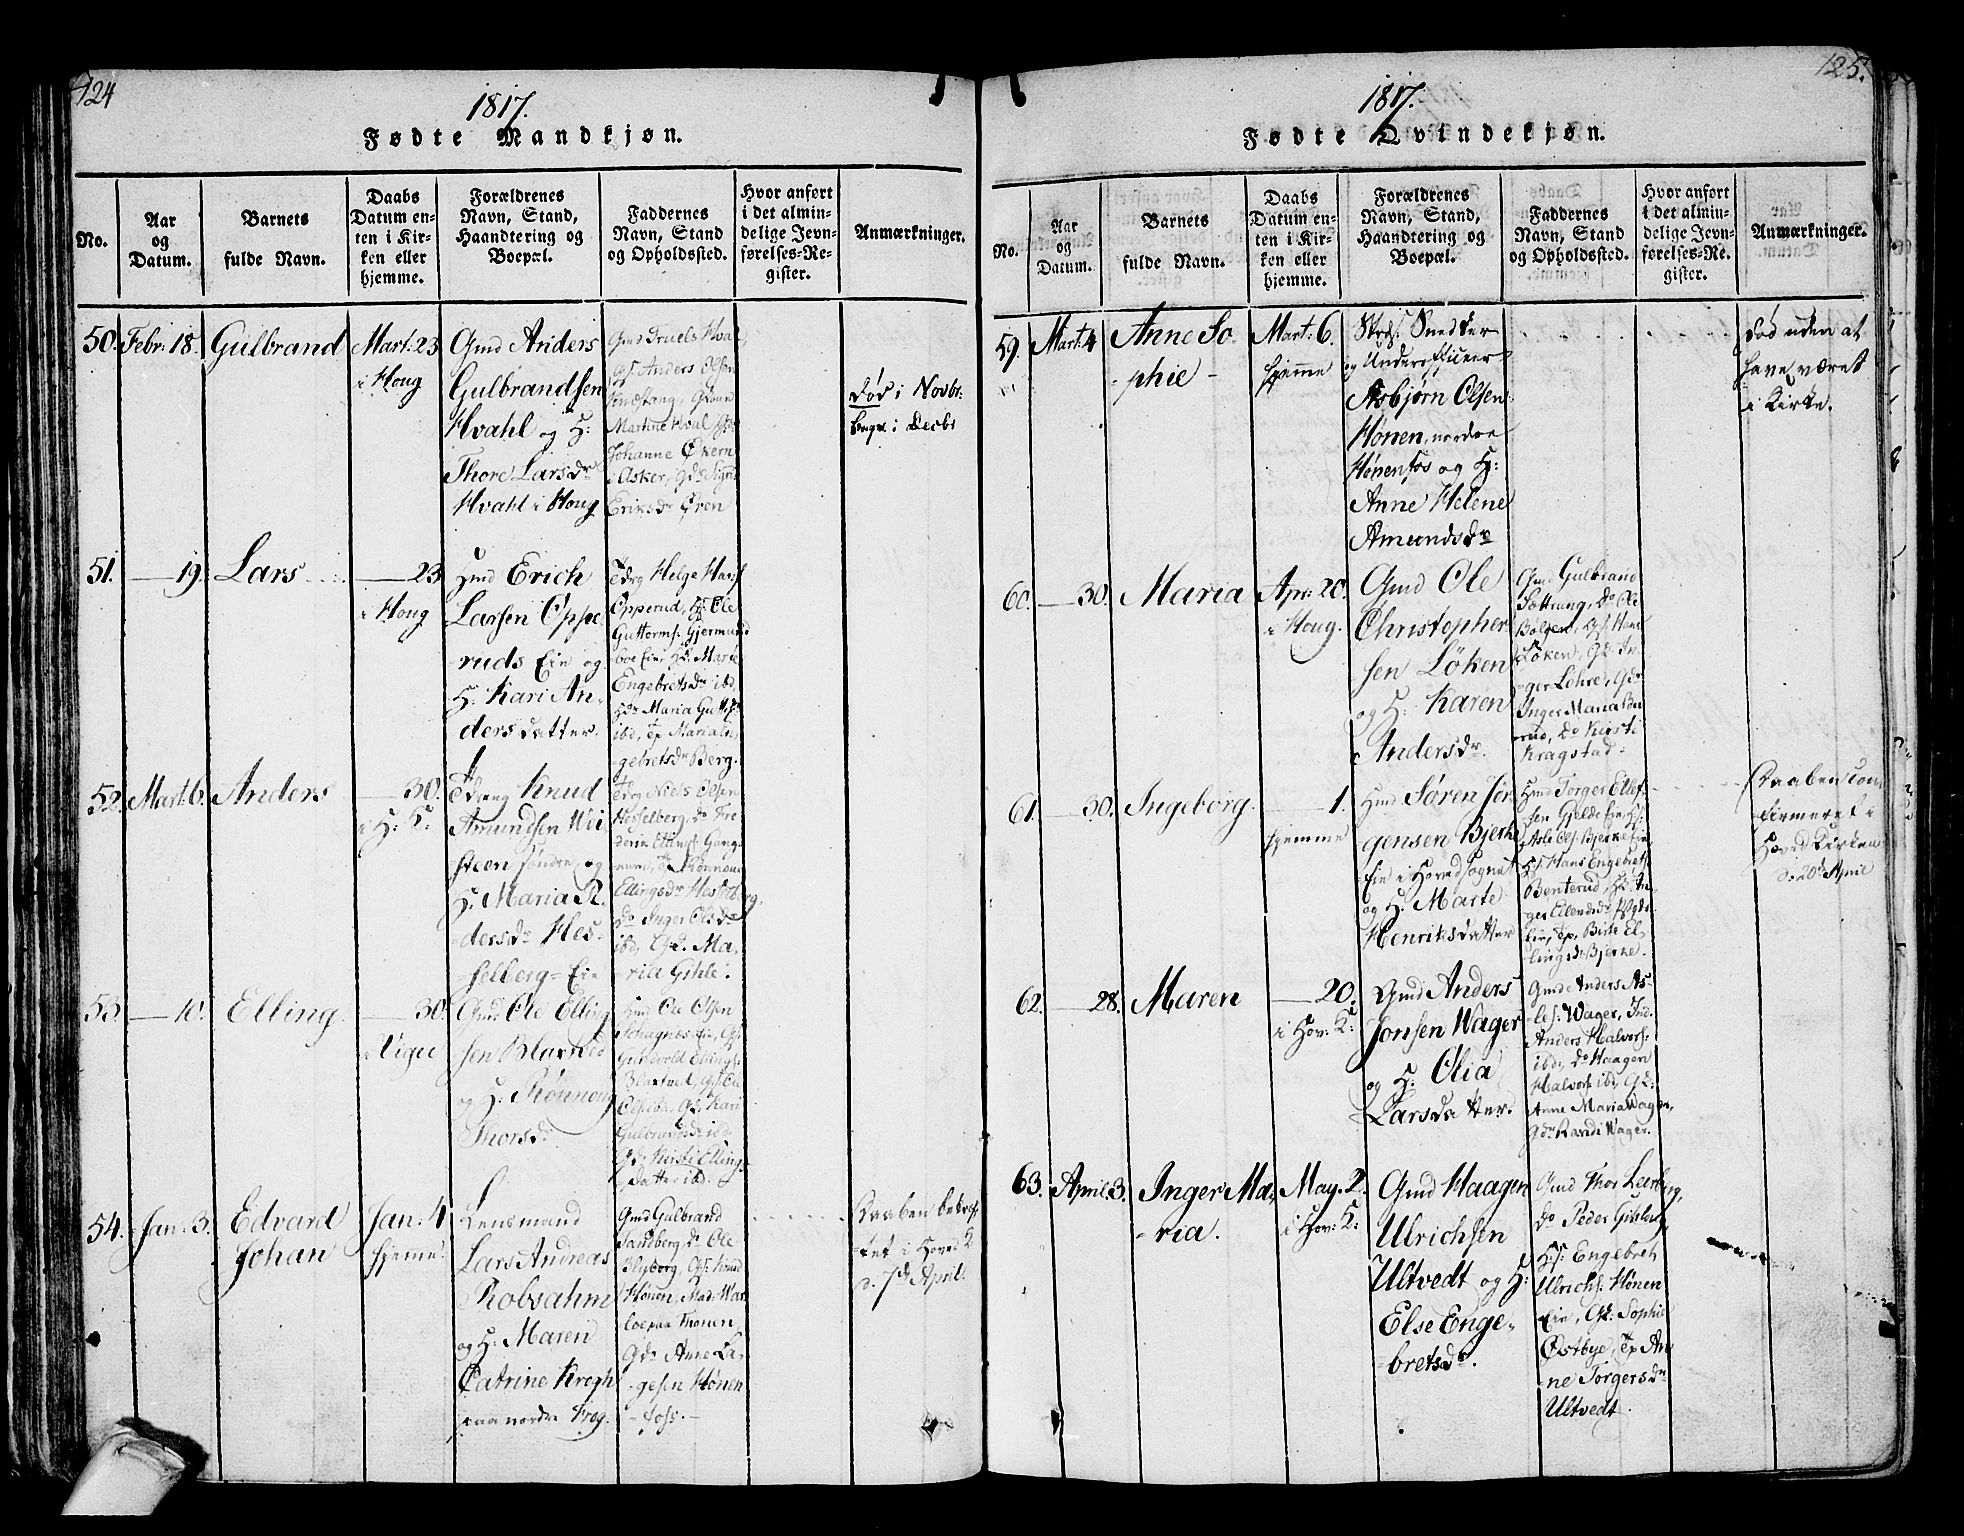 124
1817.
Fødte Mandkjøn.
No.
Aar
og
Datum.
Barnets
fulde Navn.
Daabs
Datum en-
ten i Kir-
ken eller
hjemme.
Forældrenes
Navn, Stand,
Haandtering og
Boepæl.
Faddernes
Navn, Stand
og Opholdssted.
Hvor anført
i det almin-
delige Jevn-
førelses-Re-
gister.
Anmærkninger.
50. Febr: 18.
Gulbrand
Mart: 23
i Houg
Gmd Anders
Gulbrandsen
Hvahl og H:
Thore Larsdr
Hvahl i Houg
Gmd Truels Hval,
Gs. Anders Olsen
Knæstang,
Martine Hval
Johanne Økern
i Asker, Gdr
Eriksdr Øren
Død i Novbr:
i Decbr
51. — 19.
Lars
— 23
i Houg
Hmd Erich
Larsen Oppe
ruds Eie og
H: Kari An-
dersdatter.
Helge Hans
Opperud, Ole
Guttorms. Gjermund
boe Eie, Marte
Engebretsdr ibd,
Maria
ibd, Tp Maria En
gebretsdr Berg.
52. Mart: 6.
Anders
— 30.
i H: K:
Knud
Amundsen Wei
steen søndre, og
H: Maria
dersdr Hes-
selberg-Eie
Niels Olsen
Hesselberg, do Fre
derik Ellings.
Rønnoug
Ellingsdr Hesselberg,
do Inger Olsdr
ibd, Gd. Ma-
ria Gihle.
53. — 10.
Elling.
— 30.
i Viger
Gmd Ole Elling
sen Blaxved
og H: Rønnoug
Thorsdr
Hmd Ole Olsen
Eie, Gs.
Ellings.
Blaxved, Gs. Ole
Ols. ibd, Gd. Kari
Gulbrandsdr ibd
Gdr Kirsti Ellings
datter ibd.
54. Jan: 3.
Edvard
Johan
Jan: 4
hjemme.
Lensmand
Lars Andreas
Robsahm
og H: Maren
Catrine Krogh
paa nordre Frog.
Gmd Gulbrand
Sandberg, do Ole
Blyborg, Gs. Knud
Hønen, Mad:
Gdr Anne La-
gesen Hønen
-foss.-
Daaben bekræf
-tet i Hoved K.
d. 7de April.
125.
1817.
Fødte Qvindekjøn.
No.
Aar
og
Datum.
Barnets
fulde Navn.
Daabs
Datum en-
ten i Kir-
ken eller
hjemme.
Forældrenes
Navn, Stand,
Haandtering og
Boepæl.
Faddernes
Navn, Stand
og Opholdssted.
Hvor anført
i det almin-
delige Jevn-
førelses-Re-
gister.
Anmærkninger.
59. Mart: 4
Anne So
-phie-
Mart: 6.
hjemme
Snedker
og Underofficeer
Asbjørn Olsen
Hønen, nordre
Hønenfos og H:
Anne Helene
Amundsdr
død uden at
have været
i Kirke.
60. — 30.
Maria
Apr: 20.
i Houg.
Gmd Ole
Christopher
sen Löken
og H: Karen
Andersdr.
Gmd Gulbrand
Søttrang, do Ole
Bølgen, Gs. Hans
Löken, Gd. In
ger Lehre, Gdr
Inger Maria
rud, do Kirsti
Kragstad-
61. — 30.
Ingeborg.
— 1.
hjemme
Hmd Søren Jør
gensen Bjerke
Eie i Hovedsognet
og H: Marte
Henriksdatter
Hmd Torger Ellef
sen Gjelde Eie, Hs:
Asle Els. Bjerke Eie
Hs. Hans Engebrets.
Benterud, Hd. In
ger Erlendsdr
Eie, Tp. Birte El-
lingsdr Bjerke.
Daaben con
firmeret i
Hoved Kirken
d: 20de April
62. — 28.
Maren
— 20.
i Hov: K:
Gmd Anders
Jonsen Wager
og H: Olia
Larsdatter.
Gmd Anders As-
les: Wager, Ind.
Anders Halvors:
ibd, do Haagen
Halvors ibd, Gd:
Anne Maria Wager,
Gdr Randi Wager.
63. April: 3.
Inger Ma,
-ria.
May. 2.
i Hov: K:
Gmd Haagen
Ulrichsen
Ultvedt og H:
Else Enge-
bretsdr.
Gmd Thor Leerberg,
do Peder Gihle,
Hs: Engebret
Ulrichs. Hønen
Eie, Gd: Sophie
Østbye, Tp An
ne Torgersdr
Ultvedt.